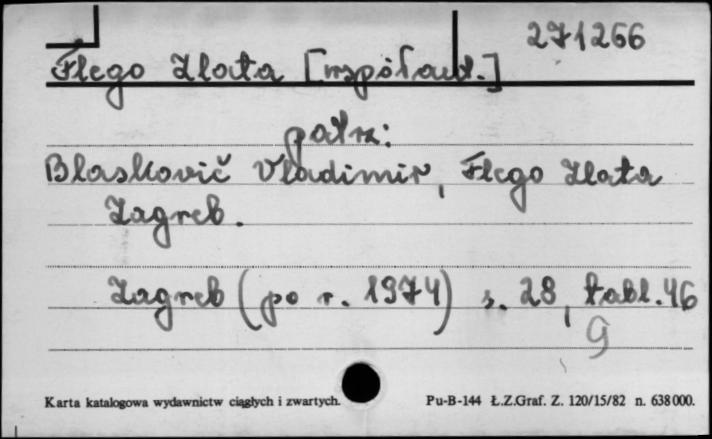 271266
Flego Zlata [współaut.]
patrz:
Blasković Vladimir, Flego Zlata
Zagreb.
Zagreb (po r. 1974) s. 28, tabl. 46
g
Karta katalogowa wydawnictw ciągłych i zwartych.
Pu-B-144 Ł.Z.Graf. Z. 120/15/82 n. 638 000.